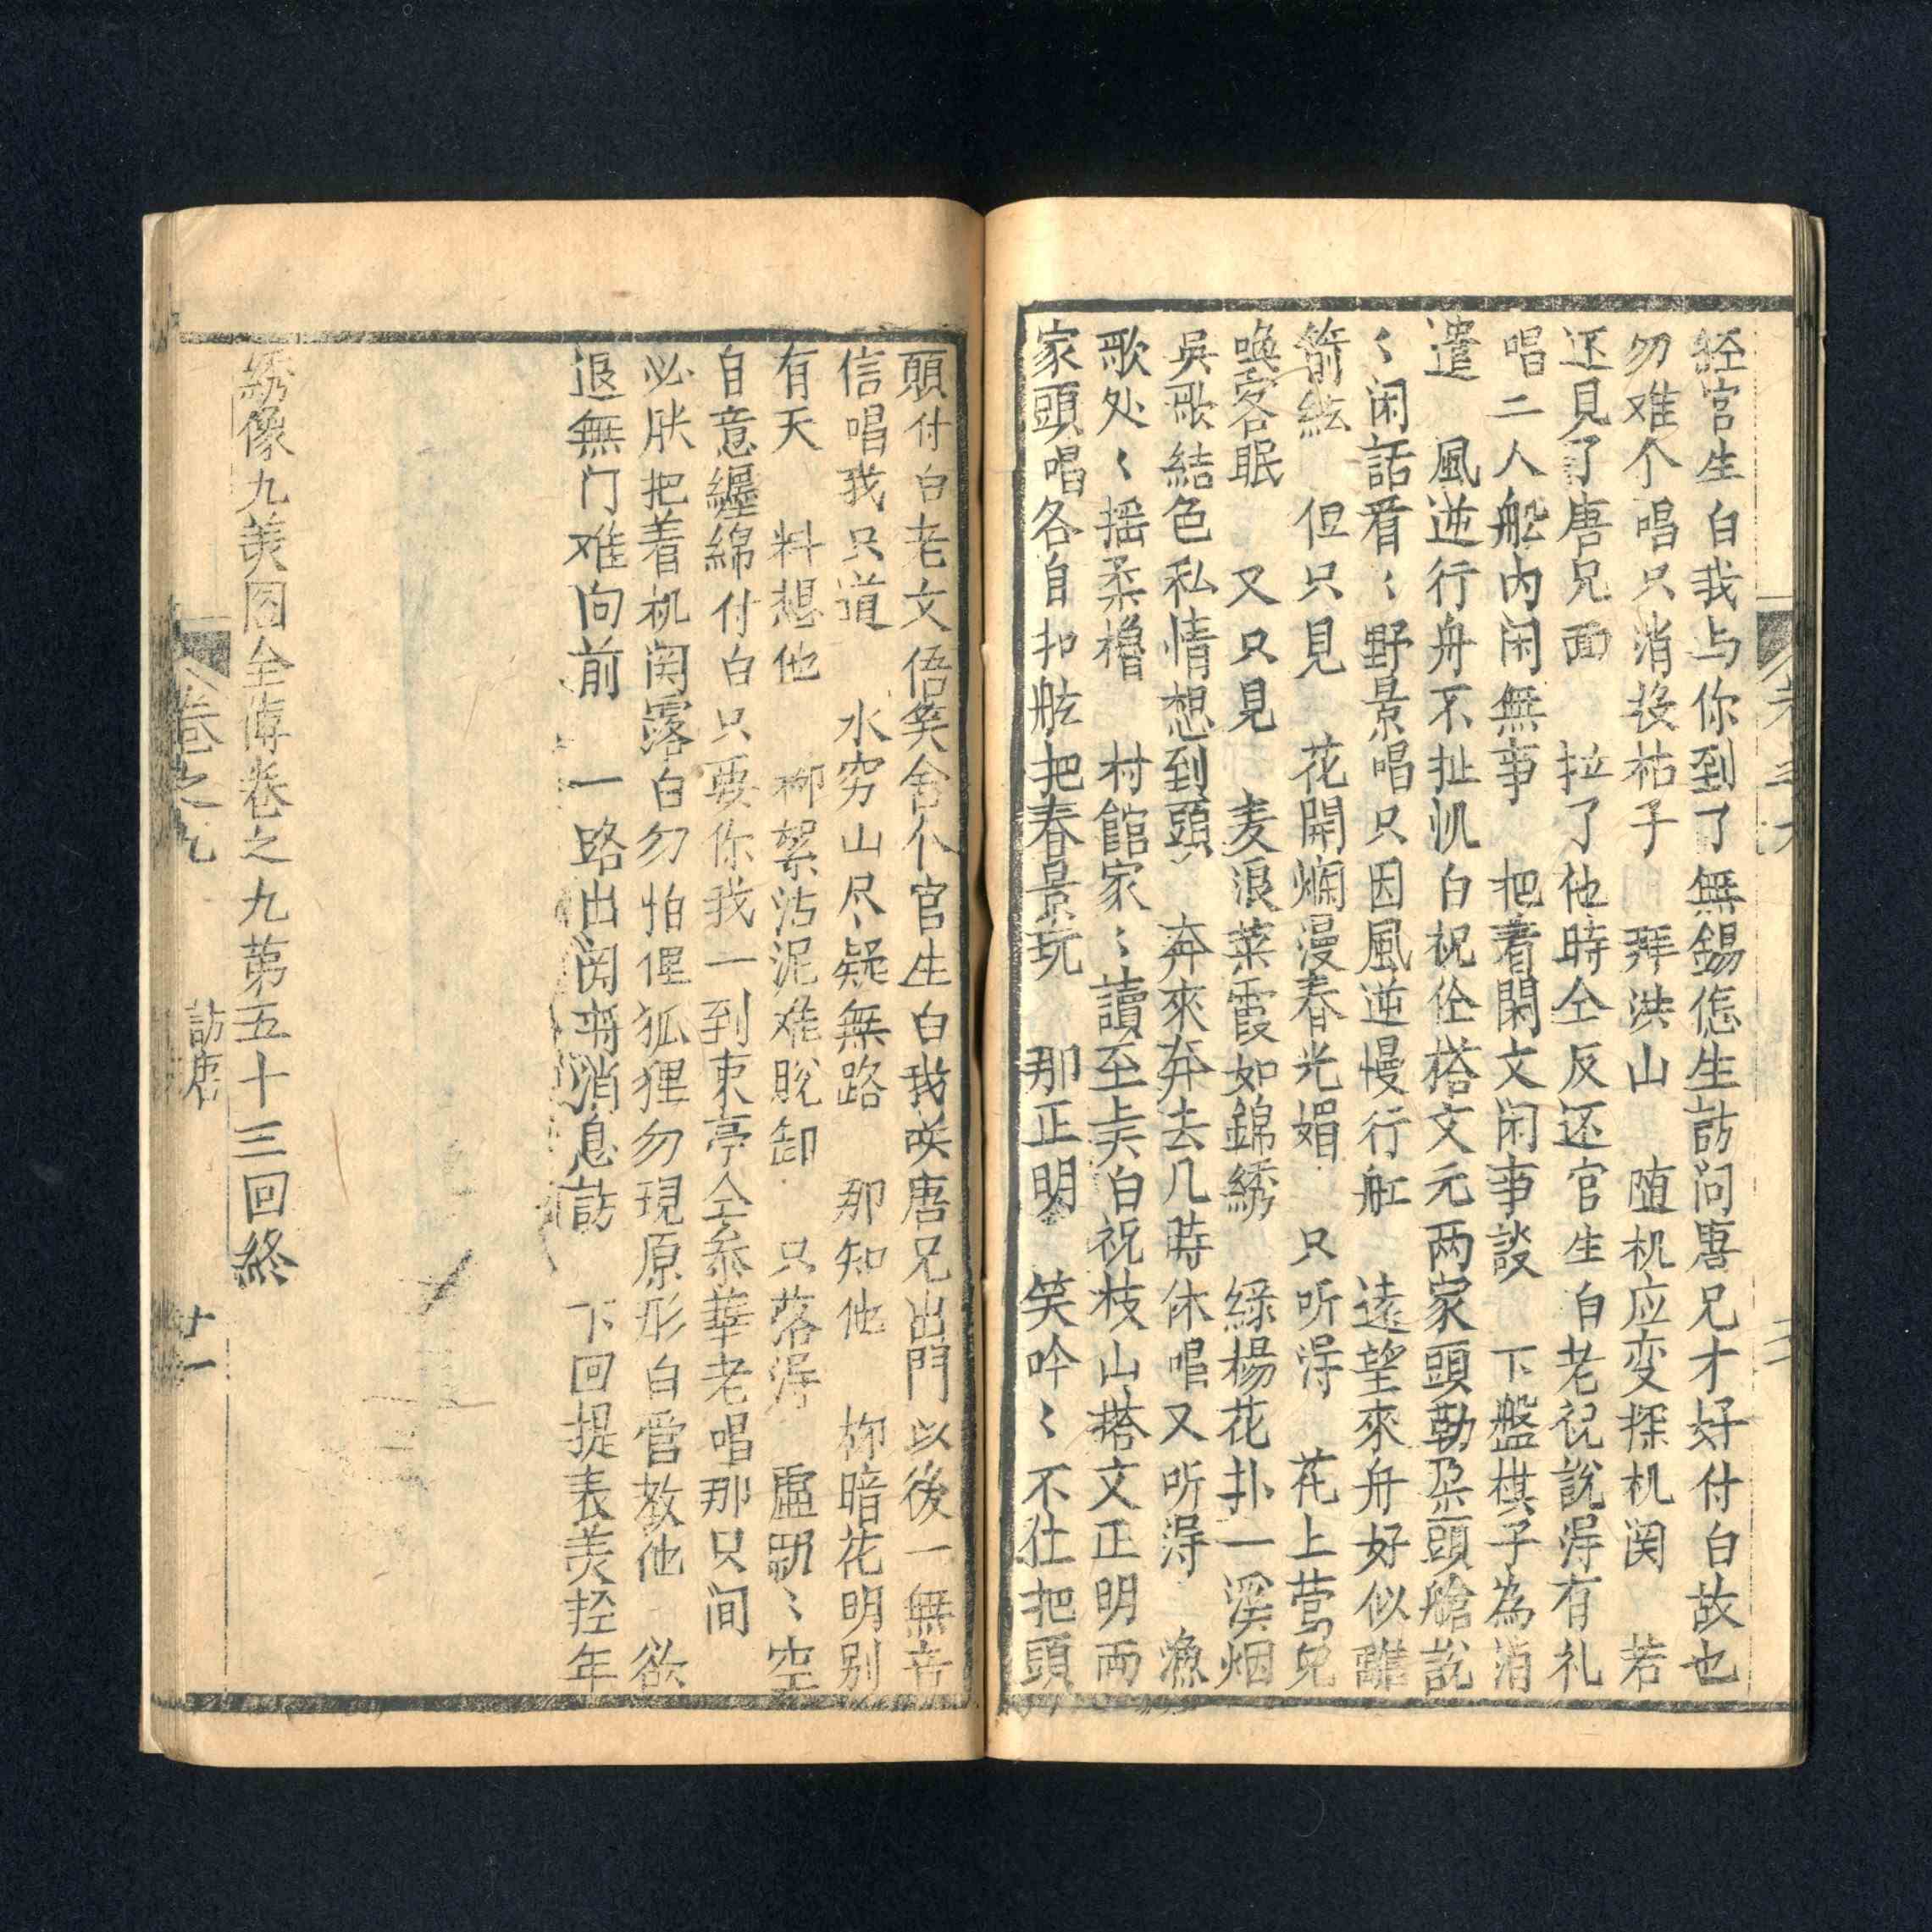 経官生白我与你到了無錫怎生訪问唐兄才好付白故也
勿难个唱只消投祜子 拜洪山 随机应变探机関 若
还見了唐兄面 拉了他時仝反还官生白老祝說淂有礼
唱二人舩内闲無事 把着閑文闲事談 下盤棋子為消
遣 風逆行舟不扯汎白祝仝搭文元两家頭勒朶頭艙說
〻闲話看〻野景唱只因風逆慢行舡 遠望來舟好似離
箭絃 但只見 花開爛漫春光媚 只听淂 花上莺兒
喚客眠 又只見 麦浪菜霞如錦綉 緑楊花扑一溪烟
吳歌結色私情想到頭 奔來奔去几時休唱又听淂 漁
歌处〻摇柔櫓 村館家〻讀至夫白祝枝山搭文正明両
家頭唱各自扣舷把春景玩 那正明 笑吟〻不住把頭
頭付白老文悟矣舍个官生白我咲唐兄出門以後一無音
信唱我只道 水穷山尽疑無路 那知他 柳暗花明别
有天 料想他 柳絮沾泥难脫卸 只落淂 虛飄〻空
自意纏綿付白只要你我一到東亭仝叅華老唱那只间
必肤把着机関露白勿怕俚狐狸勿現原形白管教他 欲
退無门难向前 一路出関将消息訪 下回提表美姪年
綉像九美图全傳卷之九第五十三回終
卷之九 訪唐 十一